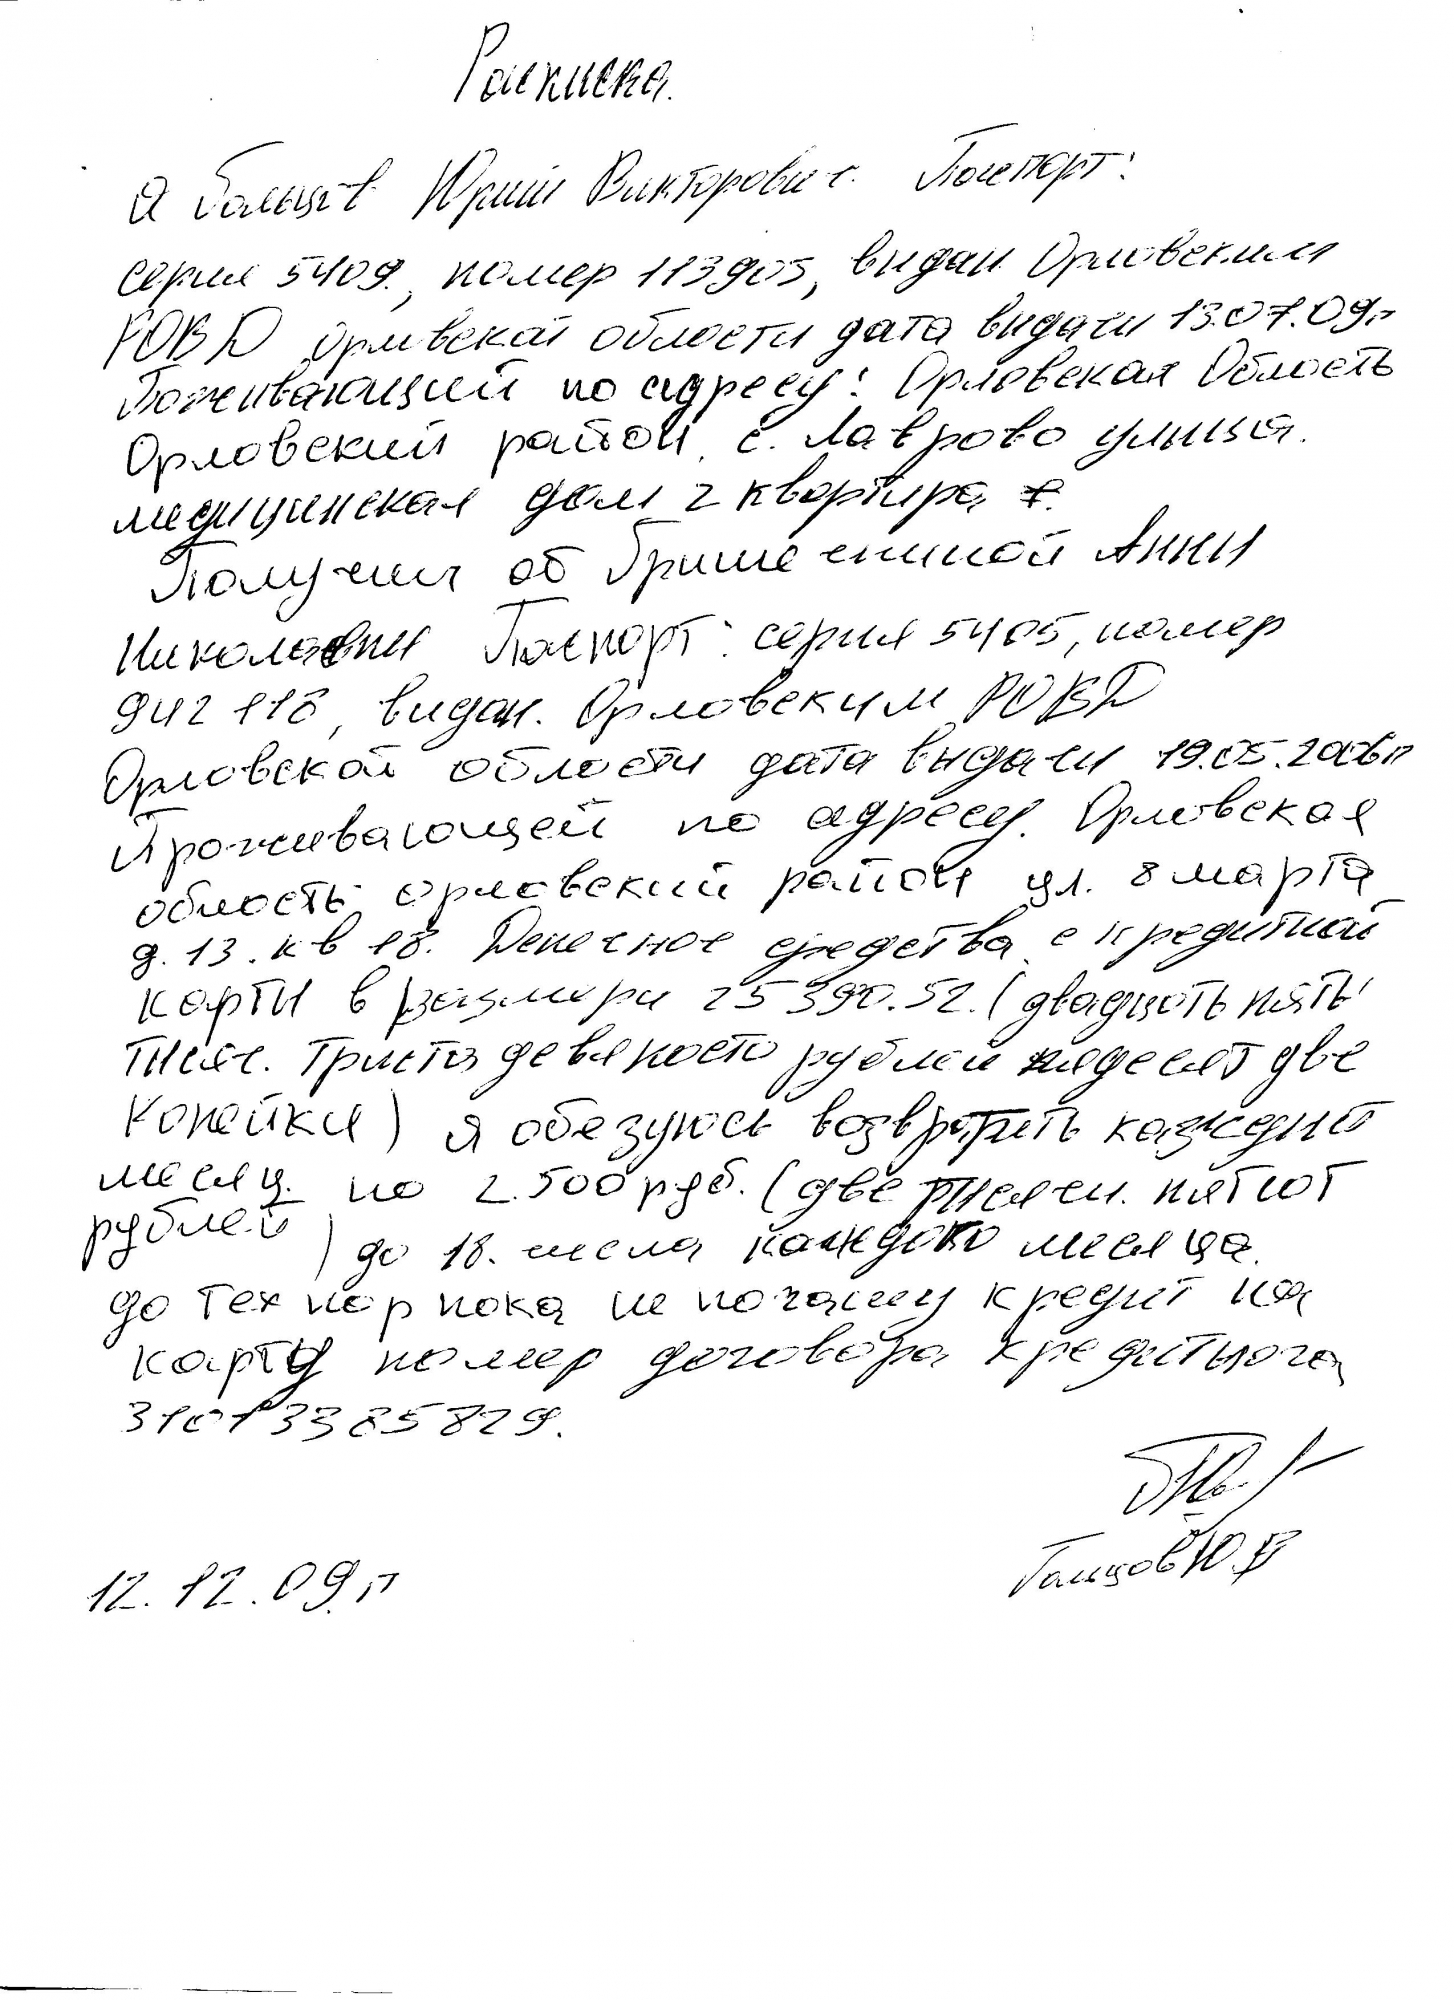 Расписка.
Я Гальцов Юрий Викторович. Паспорт:
серия 5409, номер 113905, выдан Орловским
РОВД Орловской области дата выдачи 13.07.09г
Поживающий по адресу: Орловская Область
Орловский район с. Лаврово улица.
медицинская дом 2 квартира
Получил от Анны
Николаевны Паспорт: серия 5405, номер
942 118, выдан. Орловским РОВД
Орловской области дата выдачи 19.05.2006г
Проживающей по адресу. Орловская
область орловский район ул. 8 марта
д. 13. кв 18. Денежное средства с кредитной
карты в размери 25 390.52. (двадцать пять
тысяч. триста девяносто рублей пядесят две
копейки) я обезуюсь возвратить каждый
месяц. по 2.500 руб. (две тысячи. пятсот
рублей) до 18. числа каждого месяца.
до тех пор пока ни погашу кредит на
карту номер договора кредитнога
31013385829.
Гальцов Ю.В
12.12.09.г